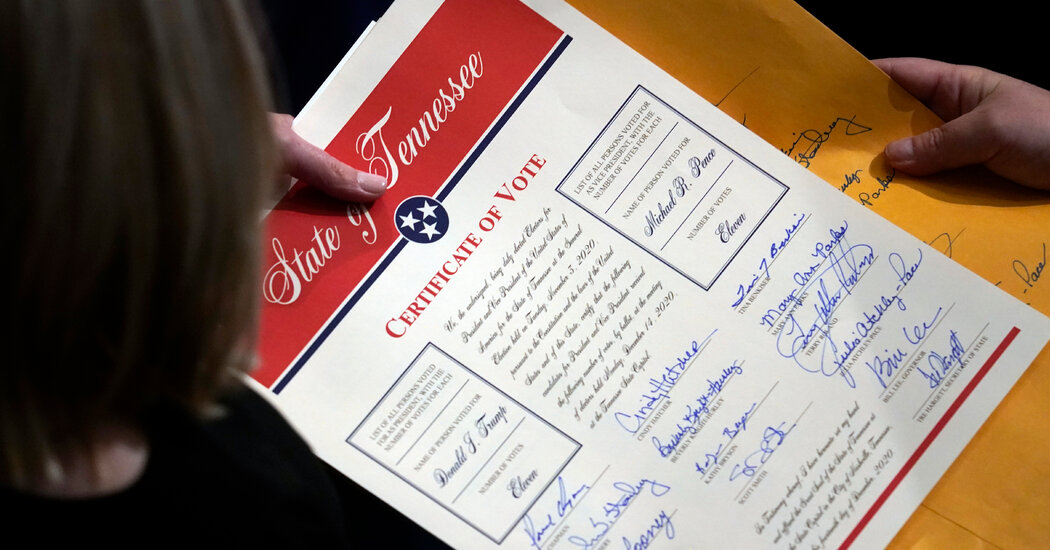 State of Tennessee
CERTIFICATE OF VOTE
We, the undersigned, being duly elected Electors for
President and Vice President of the United States of
America for the State of Tennessee at the General
Election held on Tuesday, November 3, 2020,
pursuant to the Constitution and the laws of the United
States and of this State, certify that the following
candidates for President and Vice President received
the following number of votes, by ballot at the meeting
of electors held Monday, December 14, 2020,
at the Tennessee State Capitol.
LIST OF ALL PERSONS VOTED
AS PRESIDENT, WITH THE
NUMBER OF VOTES FOR EACH
NAME OF PERSON VOTED FOR
Donald J. Trump
NUMBER OF VOTES
Eleven
LIST OF ALL PERSONS VOTED FOR
AS VICE PRESIDENT, WITH THE
NUMBER OF VOTES FOR EACH
NAME OF PERSON VOTED FOR
Michael R. Pence
NUMBER OF VOTES
Eleven
CHAPMAN
Cindy Hatcher
CINDY HATCHER
Beverly Knight-Hurley
BEVERLY KNIGHT-HURLEY
KATHY BRYSON
SCOTT SMITH
Tina Benkiser
TINA BENKISER
Mary Ann Parks
MARY ANN PARKS
TERRY ROLAND
Julia Atchley-Pace
JULIA ATCHLEY PACE
Bill Lee
BILL LEE, GOVERNOR
TRE HARGETT, SECRETARY OF STATE
In Testimony whereof, I have hereunto set my hand
and affixed the Great Seal of the State of Tennessee at
the State Capitol in the City of Nashville, Tennessee,
the fourteenth day of December, 2020